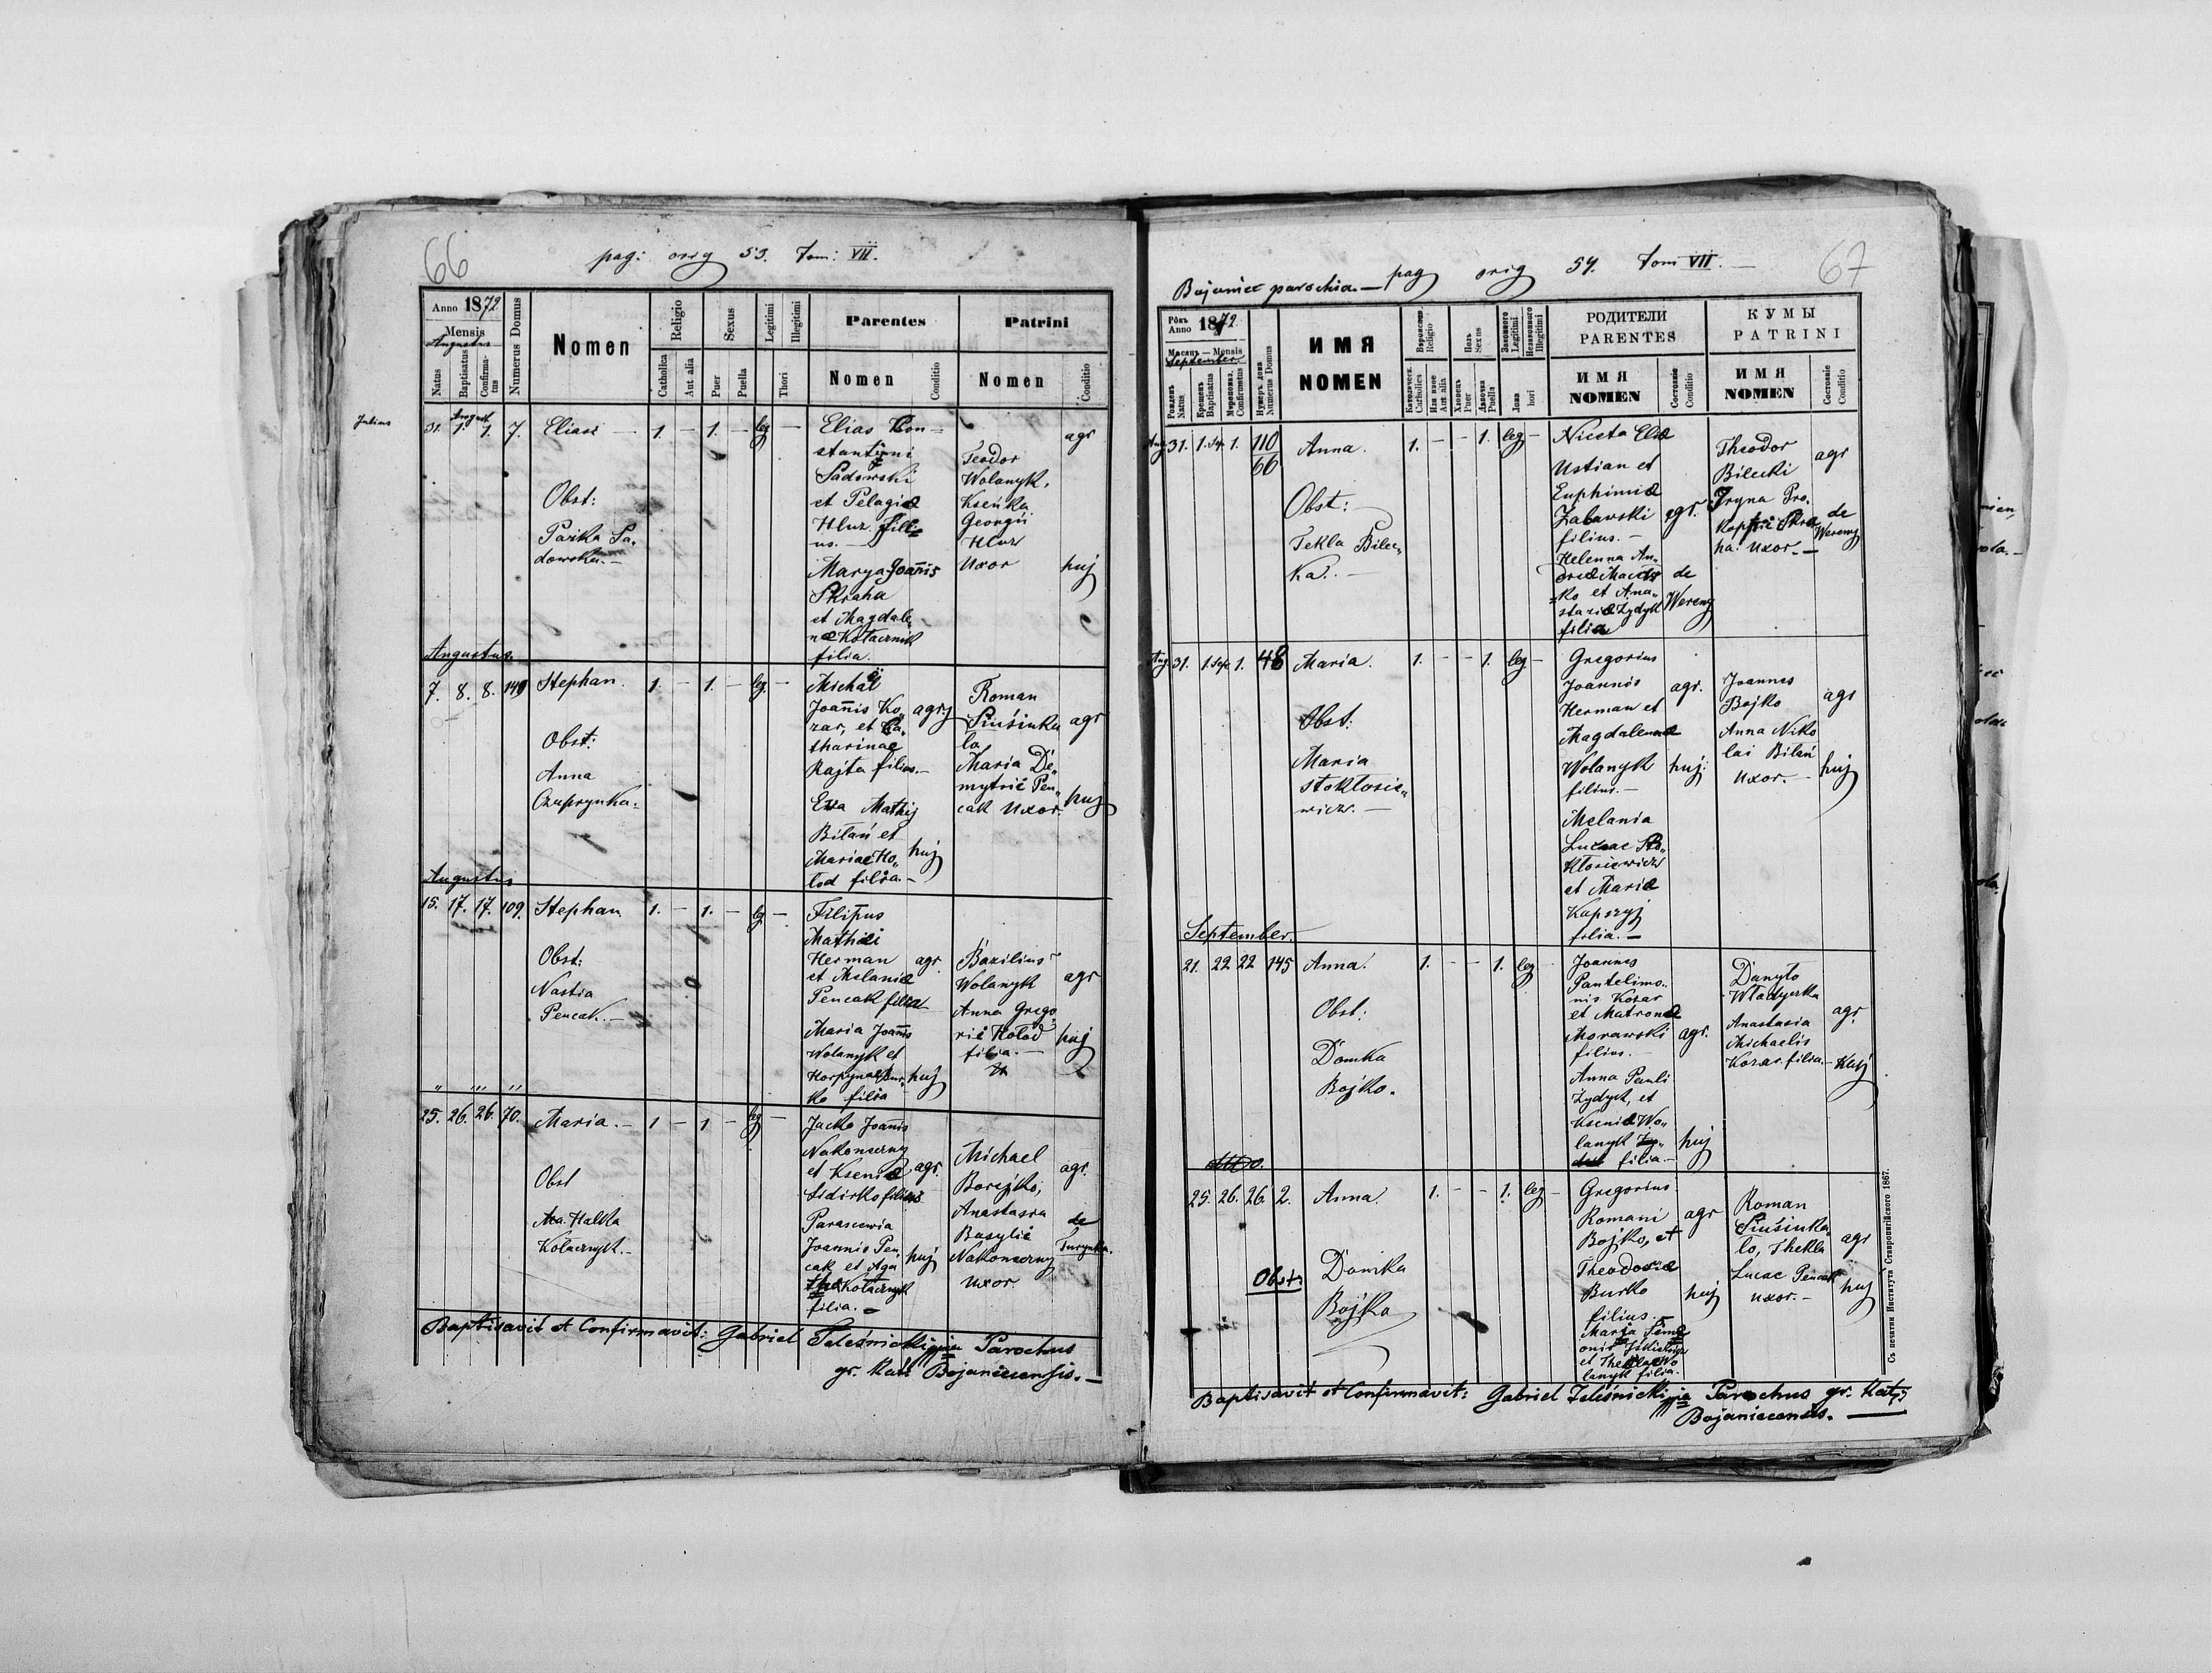 66
pag: orig 53. Tom: VII.
Anno 1872
Mensis
Augustus
Natus
Baptisatus
Confirmatus
Numerus Domus
Nomen
Religio
Catholica
Aut alia
Sexus
Puer
Puella
Legitimi
Illegitimi
Thori
Parentes
Nomen
Conditio
Patrini
Nomen
Conditio
Julius
August.
31. 1. 1. 7. Eliasz 1. — 1. — leg —
Obst:
Paśka Sa„
dowska.—
Elias Con=
stantini
Sadowski
et Pelagiæ
Hluz fili=
us.—
Marya Joannis
Skraha
et Magdale„
næ Kołacznik
filia.
Teodor
Wolanyk,
Kseńka
Georgii
Hluz
Uxor
agr
huj
Augustus.
7. 8. 8. 149 Stephan. 1. — 1. — leg. —
Obst:
Anna
Czuprynka.
Michaël
Joannis Ko„
zar, et Ca„
tharinae
Rajta filius.—
Eva Mathij
Bilań et
Mariae Ho„
łod filia.—
agr
huj
Roman
Siuśiuka
ło
Maria De„
mytrie Pen„
cak Uxor.
agr
huj
Augustus
15. 17. 17. 109. Stephan 1. — 1. — leg —
Obst:
Nastia
Pencak.—
Filipus
Mathiei
Herman
et Melaniæ
Pencak filius
Maria Joannis
Wolanyk et
Horpynae Bur„
ko filia
agr.
huj
Bazilius
Wolanyk
Anna Grego„
rii Hołod
filia.—
agr
huj
„ „ „
25. 26. 26. 70. Maria.— 1 — 1 — leg —
Obst
Halka
Kołacznyk.—
Jacko Joannis
Nakoneczny
et Kseniæ
Sidirko filius
Parascewia
Joannis Pen„
cak et Aga
the Kołacznyk
filia.—
agr.
huj
Michael
Borejko,
Anastasia
Basylii
Nakoneczny
uxor
agr.
de
Turynka.
Baptisavit et Confirmavit: Gabriel Teleśnicki Parochus
gr. Kath Bojaniecensis.—
67
Bojaniec parochia.— pag orig 54. Tom VII.—
Рôкъ
Anno 1872
Мѣсяцъ — Mensis
September
Рожденъ
Natus
Крещенъ
Baptisatus
Мѵропомаз.
Confirmatus
Нумеръ дома
Numerus Domus
ИМЯ
NOMEN
Religio
Catholica
Aut alia
Полъ
Sexus
Хлопецъ
Puer
Дѣвочка
Puella
Законного
Legitimi
Незаконного
Illegitimi
Ложа
hori
РОДИТЕЛИ
PARENTES
ИМЯ
NOMEN
Состоянiе
Conditio
КУМЫ
PATRINI
ИМЯ
NOMEN
Состоянiе
Conditio
Aug. 31. 1. Sep. 1. 110
66 Anna. 1. — — 1. leg —
Obst:
Tekla Bilec„
ka.—
Niceta Eliæ
Ustian et
Euphimiæ
Zabawski
filius.—
Helenna An„
staziæ Zydyk
filia
agr.
de
Werenj
Theodor
Bilecki
Iryna Pro„
ha. uxor.—
agr
de
Werenj
Aug. 31. 1. Sep. 1. 48 Maria. 1. — — 1. leg —
Obst:
Maria
Stokłosie„
wicz.—
Gregorius
Joannis
Herman et
Magdalenæ
Wolanyk
filius.—
Melania
Lucae Sto„
kłosiewicz
et Mariæ
Kapszyj
filia.—
agr.
huj.
Joannes
Bojko
Anna Niko
lai Bilań
Uxor.—
agr
huj
September.
21. 22 22 145 Anna. 1. — — 1. leg —
Obst:
Domka
Bojko.
Joannes
Pantelimo„
nis Kozar
et Matronæ
Morawski
filius.—
Anna Pauli
Zydyk, et
Kseniæ Wo„
lanyk
filia.—
agr.
huj
Danyło
Władyczka
Anastasia
Michaelis
Kozar filia.—
agr.
Huj
25. 26. 26. 2. Anna. 1. — — 1. leg —
Obst:
Domka
Bojko
Gregorius
Romani
Bojko, et
Theodosiæ
Burko
filius.—
Maria
et Theklae Wo
lanyk filia.
agr
huj
Roman
Siuśiuka„
ło, Thekla
Lucae Pencak
uxor.—
agr
huj
Baptisavit et Confirmavit: Gabriel Teleśnicki Parochus gr. Kath
Bojaniecensis.—
Съ печатни Института Ставропигійского 1867.